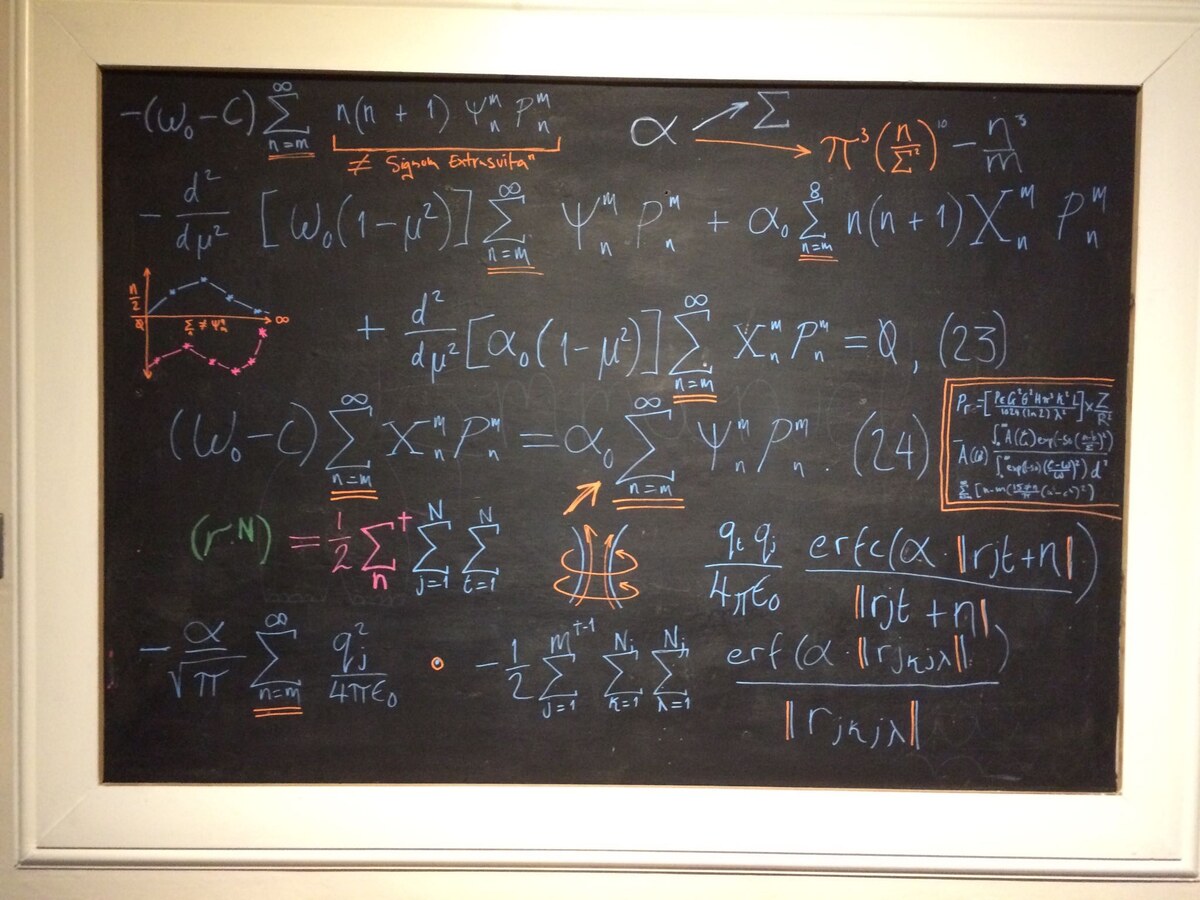 -(ω₀-C) ∑_{n=m}^{∞} n(n + 1) Ψ_n^m P_n^m
≠ Signom Extrasvita^n
α → Σ
α → π³(n/Σ²)^{10} - n³/m
- d²/dμ² [ω₀(1-μ²)] ∑_{n=m}^{∞} Ψ_n^m P_n^m + α₀ ∑_{n=m}^{8} n(n+1) X_n^m P_n^m
n/2
∞
+ d²/dμ² [α₀(1-μ²)] ∑_{n=m}^{∞} X_n^m P_n^m = 0, (23)
(ω₀-c) ∑_{n=m}^{∞} X_n^m P_n^m = α₀ ∑_{n=m}^{∞} Ψ_n^m P_n^m. (24)
(r.N) = 1/2 ∑_n^† ∑_{j=1}^{N} ∑_{t=1}^{N}
q_t q_j / 4πε₀ erfc(α·||rjt+n|) / ||rjt+n|
- α/√π ∑_{n=m}^{∞} q_j²/4πε₀ • - 1/2 ∑_{j=1}^{m^{†-1}} ∑_{κ=1}^{N_j} ∑_{λ=1}^{N_j} erf(α·||r_{jκjλ}||) / ||r_{jκjλ}|